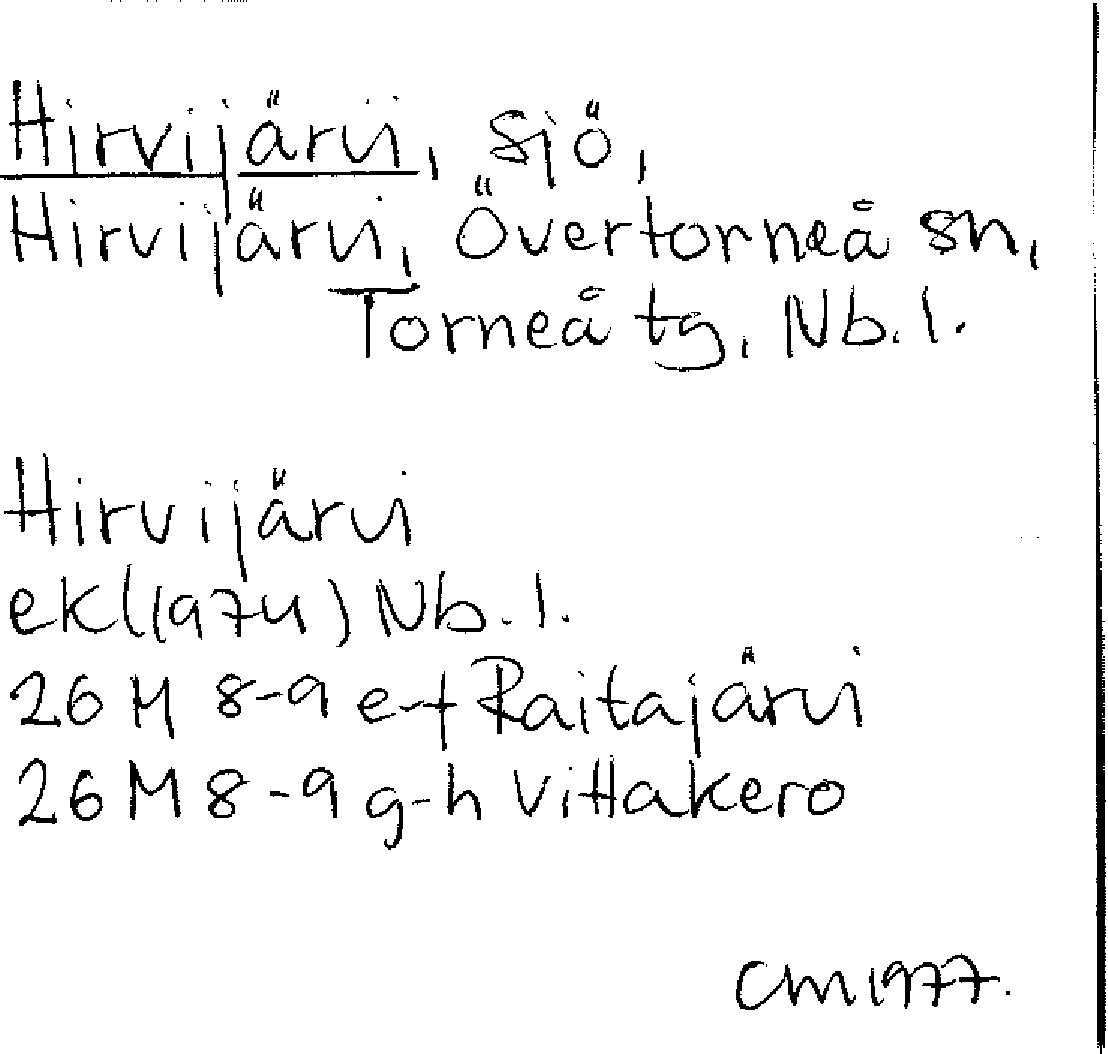 Hirvijärvi, sjö,
Hirvijärvi, Övertorneå sn,
Torneå tg, Nb. l.
Hirvijärvi
ek (1974) Nb. l.
26 M 8-9 e-f Raitajärvi
26 M 8-9 g-h Vittakero
CM 1977.